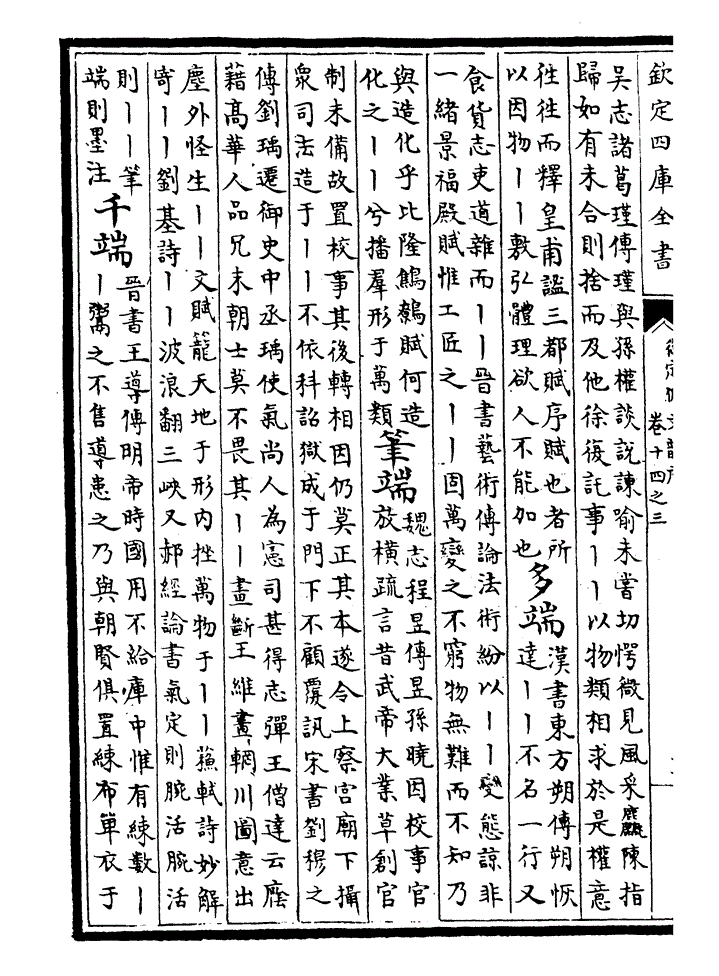 欽定四庫全書
卷十四之三
吳志諸葛瑾傳瑾與孫權談說諫喻未嘗切愕微見風采麤陳指
歸如有未合則捨而及他徐復託事丨丨以物類相求於是權意
往往而釋皇甫謐三都賦序賦也者所
以因物丨丨敷弘體理欲人不能加也
多端
漢書東方朔傳朔恢
達丨丨不名一行又
食貨志吏道雜而丨丨晉書藝術傳論法術紛以丨丨變態諒非
一緒景福殿賦惟工匠之丨丨固萬變之不窮物無難而不知乃
與造化乎比隆鷦鷯賦何造
化之丨丨兮播羣形于萬類
筆端
魏志程昱傳昱孫曉因校事官
放橫疏言昔武帝大業草創官
制未備故置校事其後轉相因仍莫正其本遂令上察宮廟下攝
衆司法造于丨丨不依科詔獄成于門下不顧覆訊宋書劉穆之
傳劉瑀遷御史中丞瑀使氣尚人為憲司甚得志彈王僧達云廕
藉高華人品冗末朝士莫不畏其丨丨畫斷王維畫輞川圖意出
塵外怪生丨丨文賦籠天地于形内挫萬物于丨丨蘇軾詩妙解
寄丨丨劉基詩丨丨波浪翻三峽又郝經論書氣定則腕活腕活
則丨丨筆
端則墨注
千端
晉書王導傳明帝時國用不給庫中惟有練數丨
丨鬻之不售導患之乃與朝賢俱置練布單衣于